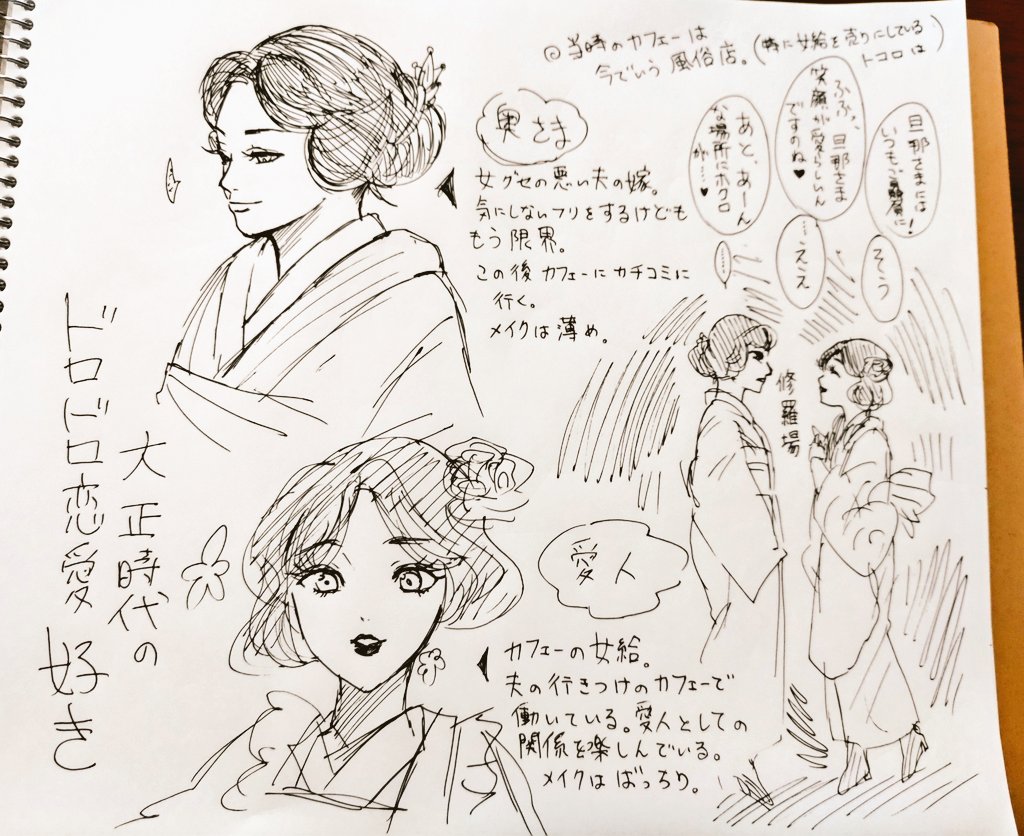 ◎当時のカフェーは
今でいう風俗店。(特に女給を売りにしている
トコロは)
奥さま
女グセの悪い夫の嫁。
気にしないフリをするけども
もう限界。
この後カフェーにカチコミに
行く。
メイクは薄め。
旦那さまには
いつもご贔屓に!
そう
ふふっ 旦那さま
笑顔が愛らしいん
ですのね♥
…ええ
あと、あーん
な場所にホクロ
が…♥
……
修羅場
愛人
カフェーの女給。
夫の行きつけのカフェーで
働いている。愛人としての
関係を楽しんでいる。
メイクはばっちり。
大正時代の
ドロドロ恋愛好き